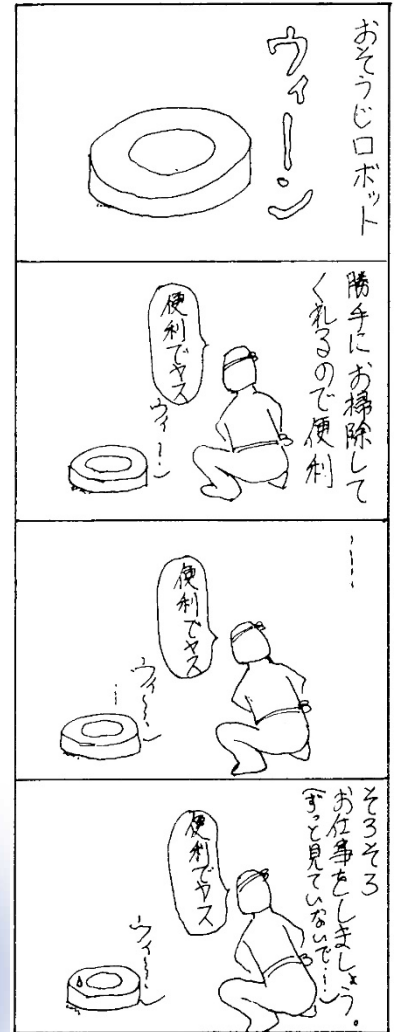 おそうじロボット
ウィーン
勝手にお掃除して
くれるので便利
便利でヤス
ウィーン
……
便利でヤス
……
ウィ〜ン
そろそろ
お仕事をしましょう。
(ずっと見ていないで…!)
便利でヤス
ウィ〜ン